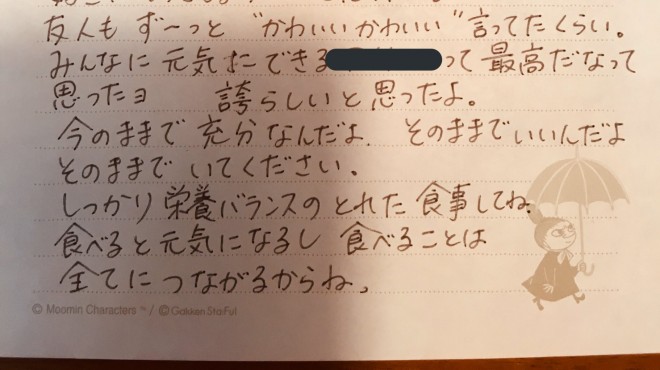 友人も ずーっと "かわいいかわいい" 言ってたくらい。
みんなに 元気に できる って 最高だなって
思ったョ 誇らしいと思ったよ。
今のままで 充分なんだよ. そのままでいいんだよ
そのままで いてください。
しっかり 栄養バランスの とれた 食事してね.
食べると元気になるし 食べることは
全てに つながるからね。
© Moomin Characters ™ / © Gakken Sta:Ful